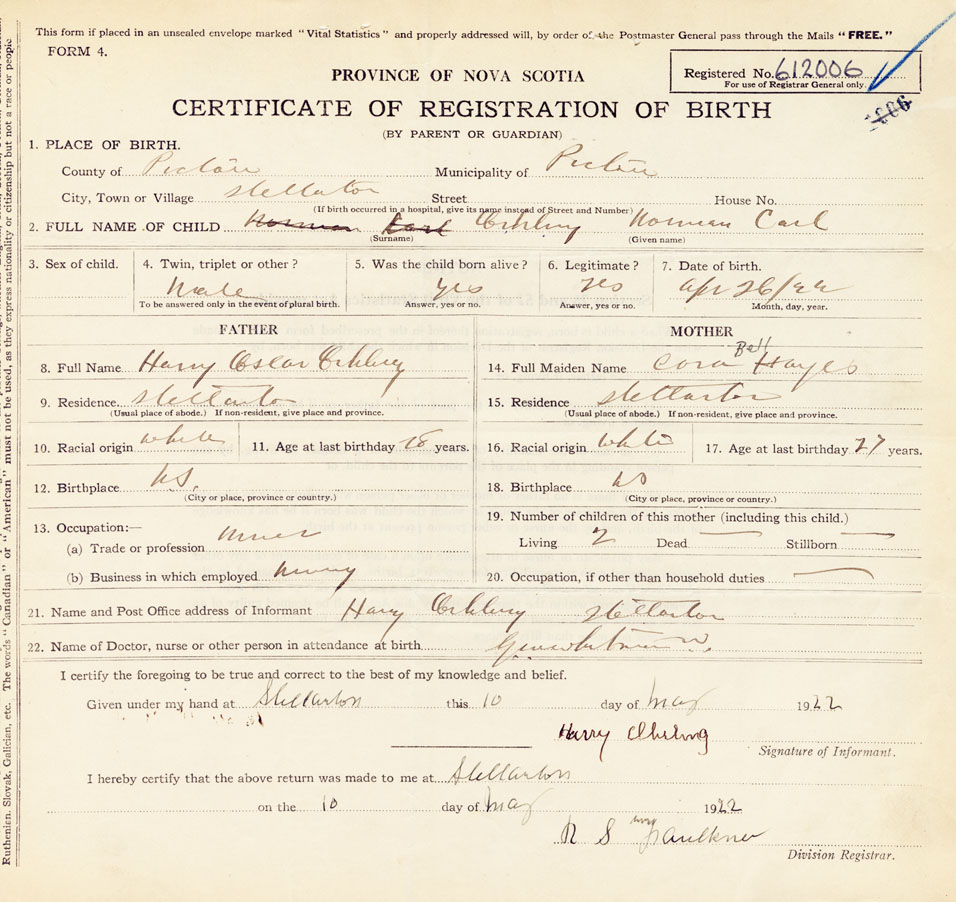 This form if placed in an unsealed envelope marked "Vital Statistics" and properly addressed will, by order of the Postmaster General pass through the Mails "FREE."
FORM 4.
Registered No. 612006
For use of Registrar General only.
PROVINCE OF NOVA SCOTIA
CERTIFICATE OF REGISTRATION OF BIRTH
(BY PARENT OR GUARDIAN)
1. PLACE OF BIRTH.
County of Pictou Municipality of Pictou
City, Town or Village Stellarton Street House No.
(If birth occurred in a hospital, give its name instead of Street and Number)
2. FULL NAME OF CHILD Norman Carl Norman Carl
(Surname) (Given name)
3. Sex of child. 4. Twin, triplet or other? 5. Was the child born alive? 6. Legitimate? 7. Date of birth.
Male yes yes Apr 26/22
To be answered only in the event of plural birth. Answer, yes or no. Answer, yes or no. Month, day, year.
FATHER
8. Full Name Harry Oscar
9. Residence Stellarton
(Usual place of abode.) If non-resident, give place and province.
10. Racial origin white 11. Age at last birthday 28 years.
12. Birthplace N.S.
(City or place, province or country.)
13. Occupation:—
(a) Trade or profession Miner
(b) Business in which employed Mining
MOTHER
14. Full Maiden Name Cora Bell Hayes
15. Residence Stellarton
(Usual place of abode.) If non-resident, give place and province.
16. Racial origin white 17. Age at last birthday 27 years.
18. Birthplace NS
(City or place, province or country.)
19. Number of children of this mother (including this child.)
Living 2 Dead — Stillborn —
20. Occupation, if other than household duties —
21. Name and Post Office address of Informant Harry Stellarton
22. Name of Doctor, nurse or other person in attendance at birth
I certify the foregoing to be true and correct to the best of my knowledge and belief.
Given under my hand at Stellarton this 10 day of May 1922
Harry
Signature of Informant.
I hereby certify that the above return was made to me at Stellarton
on the 10 day of May 1922
R S Faulkner
Division Registrar.
Ruthenian, Slovak, Galician, etc. The words "Canadian" or "American" must not be used, as they express nationality or citizenship but not a race or people